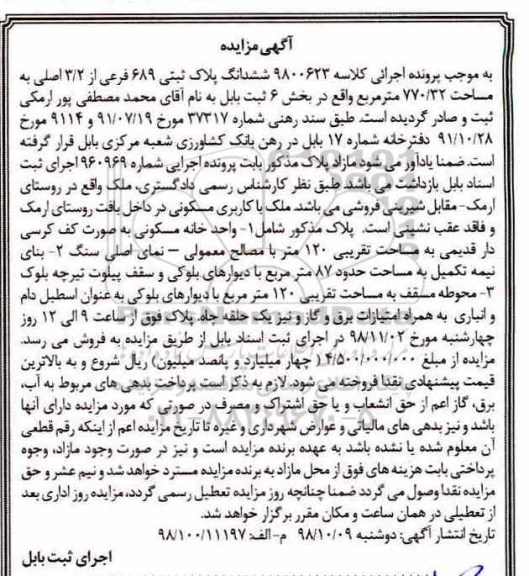 آگهی مزایده
به موجب پرونده اجرائی کلاسه ۹۸۰۰۶۲۳ ششدانگ پلاک ثبتی ۶۸۹ فرعی از ۳/۲ اصلی به
مساحت ۷۷۰/۳۲ مترمربع واقع در بخش ۶ ثبت بابل به نام آقای محمد مصطفی پور ارمکی
ثبت و صادر گردیده است. طبق سند رهنی شماره ۳۷۳۱۷ مورخ ۹۱/۰۷/۱۹ و ۹۱۱۴ مورخ
۹۱/۱۰/۲۸ دفترخانه شماره ۱۷ بابل در رهن بانک کشاورزی شعبه مرکزی بابل قرار گرفته
است. ضمنا یادآور می شود مازاد پلاک مذکور بابت پرونده اجرایی شماره ۹۶۰۹۶۹ اجرای ثبت
اسناد بابل بازداشت می باشد. طبق نظر کارشناس رسمی دادگستری، ملک واقع در روستای
ارمک- مقابل شیرینی فروشی می باشد. ملک با کاربری مسکونی در داخل بافت روستای ارمک
و فاقد عقب نشینی است. پلاک مذکور شامل ۱- واحد خانه مسکونی به صورت کف کرسی
دار قدیمی به مساحت تقریبی ۱۲۰ متر با مصالح معمولی – نمای اصلی سنگ ۲- بنای
نیمه تکمیل به مساحت حدود ۸۷ متر مربع با دیوارهای بلوکی و سقف پیلوت تیرچه بلوک
۳- محوطه مسقف به مساحت تقریبی ۱۲۰ متر مربع با دیوارهای بلوکی به عنوان اسطبل دام
و انباری به همراه امتیازات برق و گاز و نیز یک حلقه چاه. پلاک فوق از ساعت ۹ الی ۱۲ روز
چهارشنبه مورخ ۹۸/۱۱/۰۲ در اجرای ثبت اسناد بابل از طریق مزایده به فروش می رسد.
مزایده از مبلغ ۴/۵۰۰/۰۰۰/۰۰۰ (چهار میلیارد و پانصد میلیون) ریال شروع و به بالاترین
قیمت پیشنهادی نقدا فروخته می شود. لازم به ذکر است پرداخت بدهی های مربوط به آب،
برق، گاز اعم از حق انشعاب و یا حق اشتراک و مصرف در صورتی که مورد مزایده دارای آنها
باشد و نیز بدهی های مالیاتی و عوارض شهرداری و غیره تا تاریخ مزایده اعم از اینکه رقم قطعی
آن معلوم شده یا نشده باشد به عهده برنده مزایده است و نیز در صورت وجود مازاد، وجوه
پرداختی بابت هزینه های فوق از محل مازاد به برنده مزایده مسترد خواهد شد و نیم عشر و حق
مزایده نقدا وصول می گردد ضمنا چنانچه روز مزایده تعطیل رسمی گردد، مزایده روز اداری بعد
از تعطیلی در همان ساعت و مکان مقرر برگزار خواهد شد.
تاریخ انتشار آگهی: دوشنبه ۹۸/۱۰/۰۹ م-الف: ۹۸/۱۰۰/۱۱۱۹۷
اجرای ثبت بابل